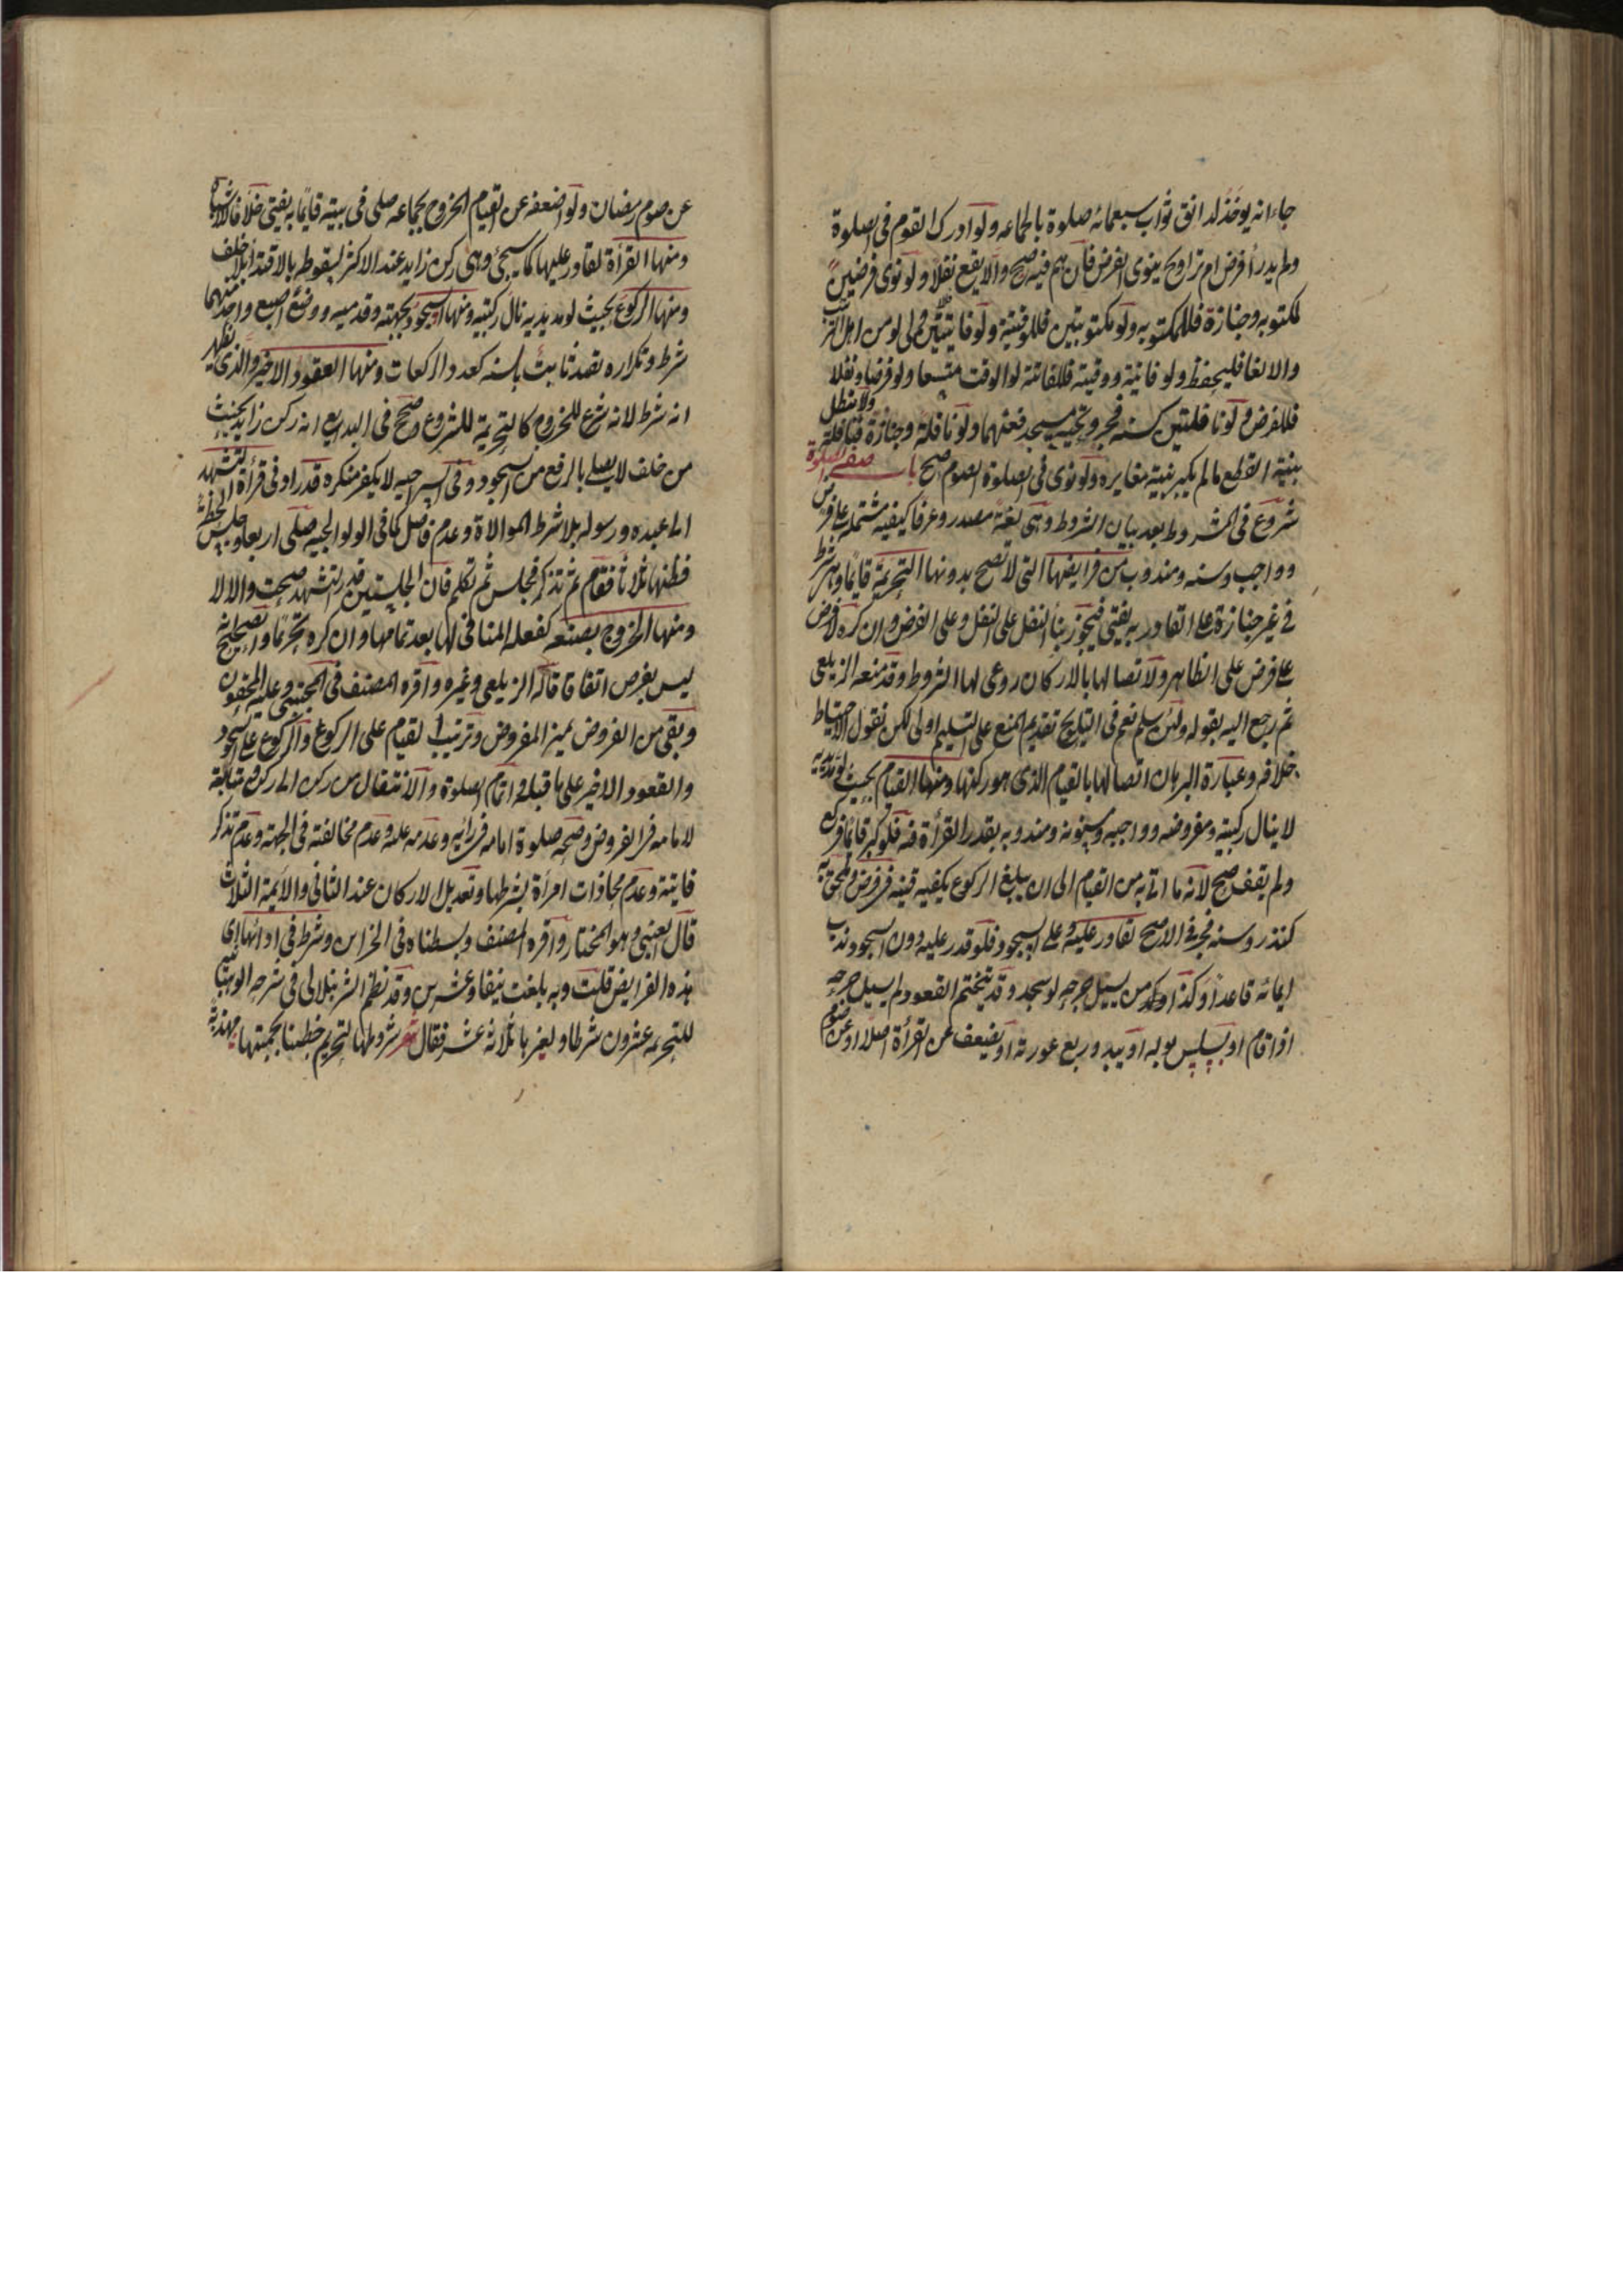 جاء انه يوخذ لدانق ثواب سبعمائه صلوة بالجماعه ولو ادرك القوم فى الصلوة
ولم يدر أفرض ام تراويح ينوى الفرض فان هم فيه صح والا يقع نفلا ولو نوى فرضين
كمكتوبه وجنازة فللمكتوبه ولو مكتوبتين فللوقتية ولو فائيتين فللاولى لو من اهل الترتيب
والا لغا فليحفظ ولو فائية ووقتية فللفائتة لو الوقت متسعا ولو فرضا ونفلا
فللفرض ولو نافلتين كسنه فجر وتحيه مسجد فعنهما ولو نافلة وجنازة فنافلة ولا تبطل
بنية القطع ما لم يكبر بنية مغايره ولو نوى فى الصلوة الصوم صح باب صفة الصلوة
شروع فى المشروط بعد بيان الشروط وهى لغة مصدر وعرفا كيفيه مشتمله على فرض
وواجب وسنه ومندوب من فرايضها التى لا تصح بدونها التحريمة قايما وهى شرط
فى غير جنازة على القادر به يفتى فيجوز بناء النفل على النفل وعلى الفرض وان كره لا فرض
على فرض على الظاهر ولاتصالها بالاركان روعى لها الشروط وقد منعه الزيلعى
ثم رجع اليه بقوله ولئن سلم نعم فى التلويح تقديم المنع على التسليم اولى لكن نقول الاحتياط
خلافه وعبارة البرهان اتصالها بالقيام الذى هو ركنها ومنها القيام بحيث لو مد يديه
لا ينال ركبتيه ومفروضه وواجبه ومسنونه ومندوبه بقدر القرأة فيه فلو كبر قايما فركع
ولم يقف صح لانه ما اتى به من القيام الى ان يبلغ الركوع يكفيه قنيه فى فرض وملحق به
كنذر وسنه فجر فى الاصح لقادر عليه وعلى السجود فلو قدر عليه دون السجود ندب
ايمائه قاعدا وكذا من يسيل جرحه لو سجد وقد يتحتم القعود لم يسيل جرحه
اذا قام او يسلس بوله او يبدو ربع عورته او يضعف عن القرأة اصلا او عن صوم
عن صوم رمضان ولو اضعفه عن القيام الخروج بجماعه صلى فى بيته قايما به يفتى خلافا للاشباه
ومنها القرأة لقادر عليها كما سيجئ وهى ركن زايد عند الاكثر لسقوطه بالاقتداء بلا خلف
ومنها الركوع بحيث لو مد يديه نال ركبتيه ومنها السجود بجبهته وقدميه ووضع اصبع واحد منهما
شرط وتكراره تعبد ثابت بالسنه كعدد الركعات ومنها القعود الاخير والذى يظهر
انه شرط لانه شرع للخروج كالتحريمة للشروع وصحح فى البدايع انه ركن زايد لحنث
من حلف لا يصلى بالرفع من السجود وفى السراجيه لا يكفر منكره قدر ادنى قرأة التشهد
الى عبده ورسوله بلا شرط الموالاة وعدم فاصل كما فى الولوالجيه صلى اربعا وجلس لحظة
فظنها ثلاثا فقام ثم تذكر فجلس ثم تكلم فان الجلستين قدر التشهد صحت والا لا
ومنها الخروج بصنعه كفعله المنافى لها بعد تمامها وان كره تحريما والصحيح انه
ليس بفرض اتفاقا قاله الزيلعى وغيره واقره المصنف فى المجتبى وعليه المحققون
وبقى من الفروض تميز المفروض وترتيب القيام على الركوع والركوع على السجود
والقعود الاخير على ما قبله واتمام الصلوة والانتقال من ركن الى ركن ومتابعة
لامامه فى الفروض وصحه صلوة امامه فى رأيه وعدمه عليه وعدم مخالفته فى الجهة وعدم تذكر
فايتة وعدم محاذات امرأة بشرطها وتعديل الاركان عند الثانى والأيمة الثلاث
قال العينى وهو المختار واقره المصنف وبسطناه فى الخزاين وشرط فى ادائها اى
هذه الفرايض قلت وبه بلغت نيفا وعشرين وقد نظم الشرنبلالى فى شرحه الوهبانيه
للتحريمه عشرون شرطا ولغيرها ثلاثه عشر فقال شعر شروطها لتحريم حظينا بجمعها مهذبة